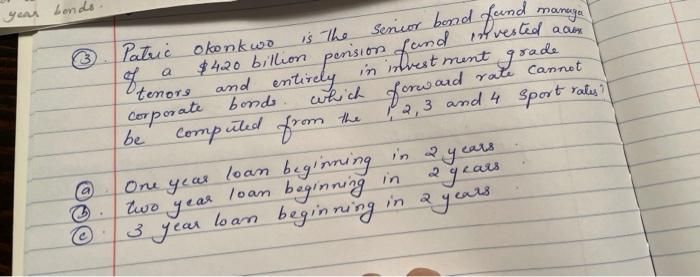 year bonds.
③ Patric Okonkwo is the Senior bond fund manage
of a $420 billion pension fund invested
tenors and entirely in investment grade
Corporate bonds. which forward rate cannot
be computed from the 1, 2, 3 and 4 Sport rates?
ⓐ One year loan beginning in 2 years
ⓑ. two year loan beginning in 2 years
ⓒ. 3 year loan beginning in 2 years